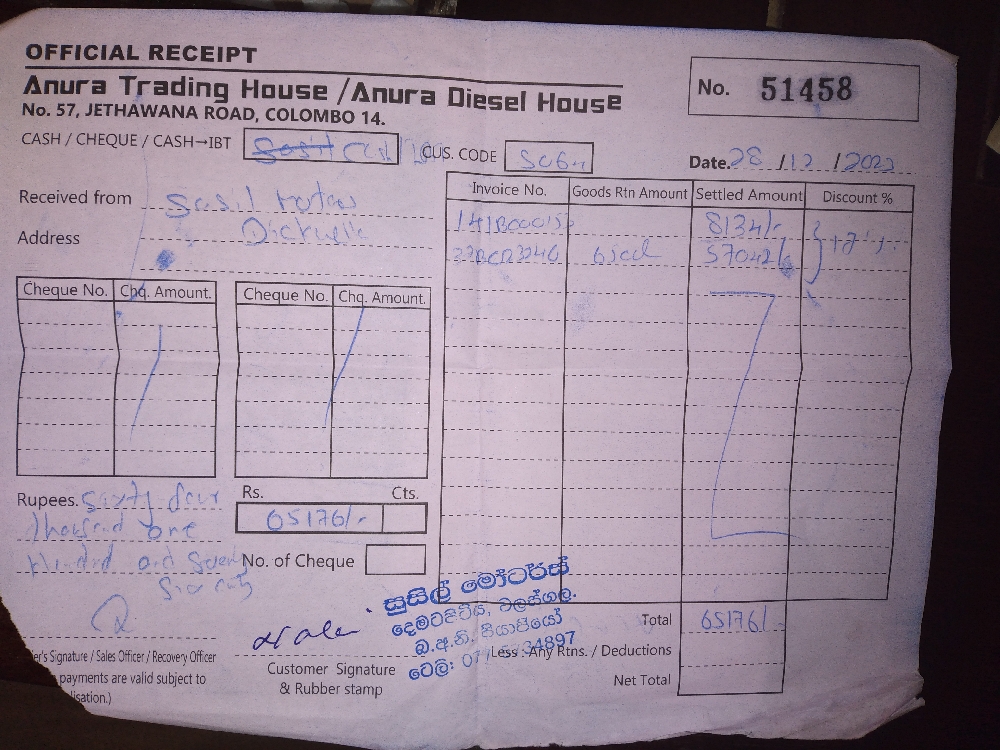 OFFICIAL RECEIPT
Anura Trading House / Anura Diesel House
No. 57, JETHAWANA ROAD, COLOMBO 14.
No. 51458
CASH / CHEQUE / CASH→IBT
CUS. CODE
Date. 28 / 12 / 2022
Received from Susil Motors
Address
Invoice No. Goods Rtn Amount Settled Amount Discount %
8134/-
57042/-
Cheque No. Chq. Amount.
Cheque No. Chq. Amount.
Rupees. Sixty four
thousand one
Hundred and Seventy
Six only
Rs. Cts.
65176/-
No. of Cheque
Total 65176/-
Less : Any Rtns. / Deductions
Net Total
සුසිල් මෝටර්ස්
ටෙලි:
Signature / Sales Officer / Recovery Officer
payments are valid subject to
Customer Signature
& Rubber stamp